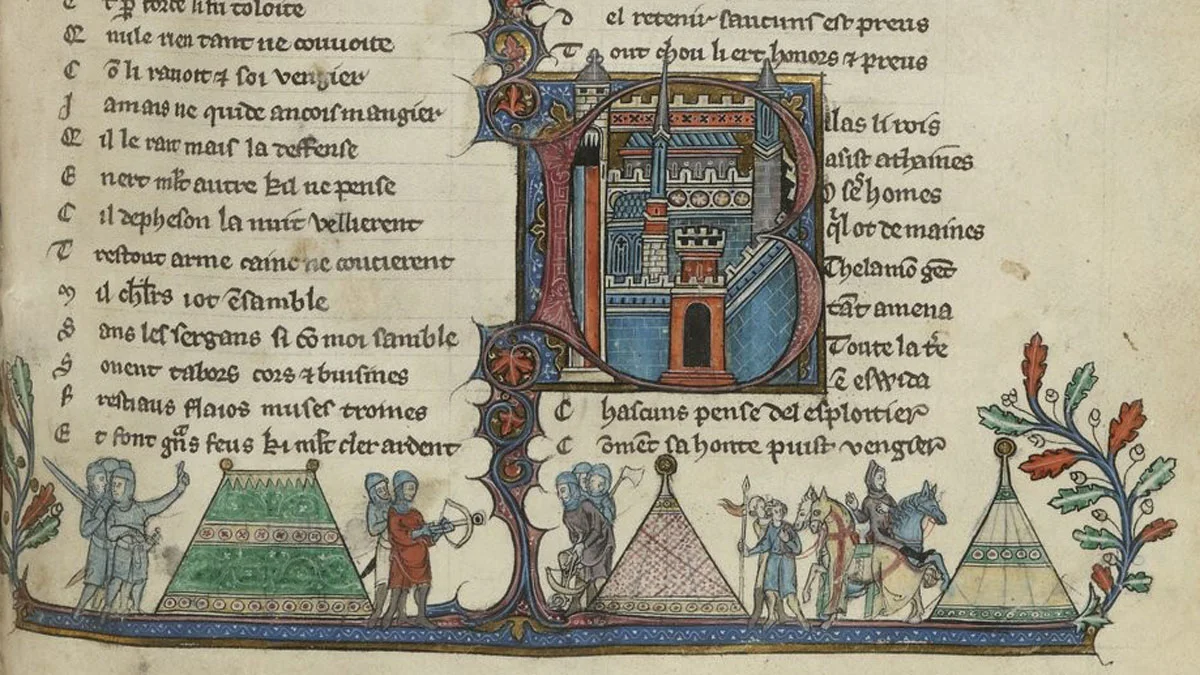 nule rien tant ne couuoite
C õ li rauoir ⁊ soi vengier
J amais ne quide ancois mangier
Q il le rait mais la deffense
C il depheson la nuit vellierent
T restout arme cainc ne coucierent
S ans les sergans si cõ moi samble
S onent tabors cors ⁊ buisines
F restiaus flaios muses troines
E t font gñs feus ki mlt cler ardent
d el retenir sauuns est preus
T out chou li ert honors ⁊ preus
las li rois
asist athaines
homes
ql ot demaines
Thelamõ
tãt amena
Toute la tre
C hascuns pense del esploitier
C õmẽt sa honte puist vengier